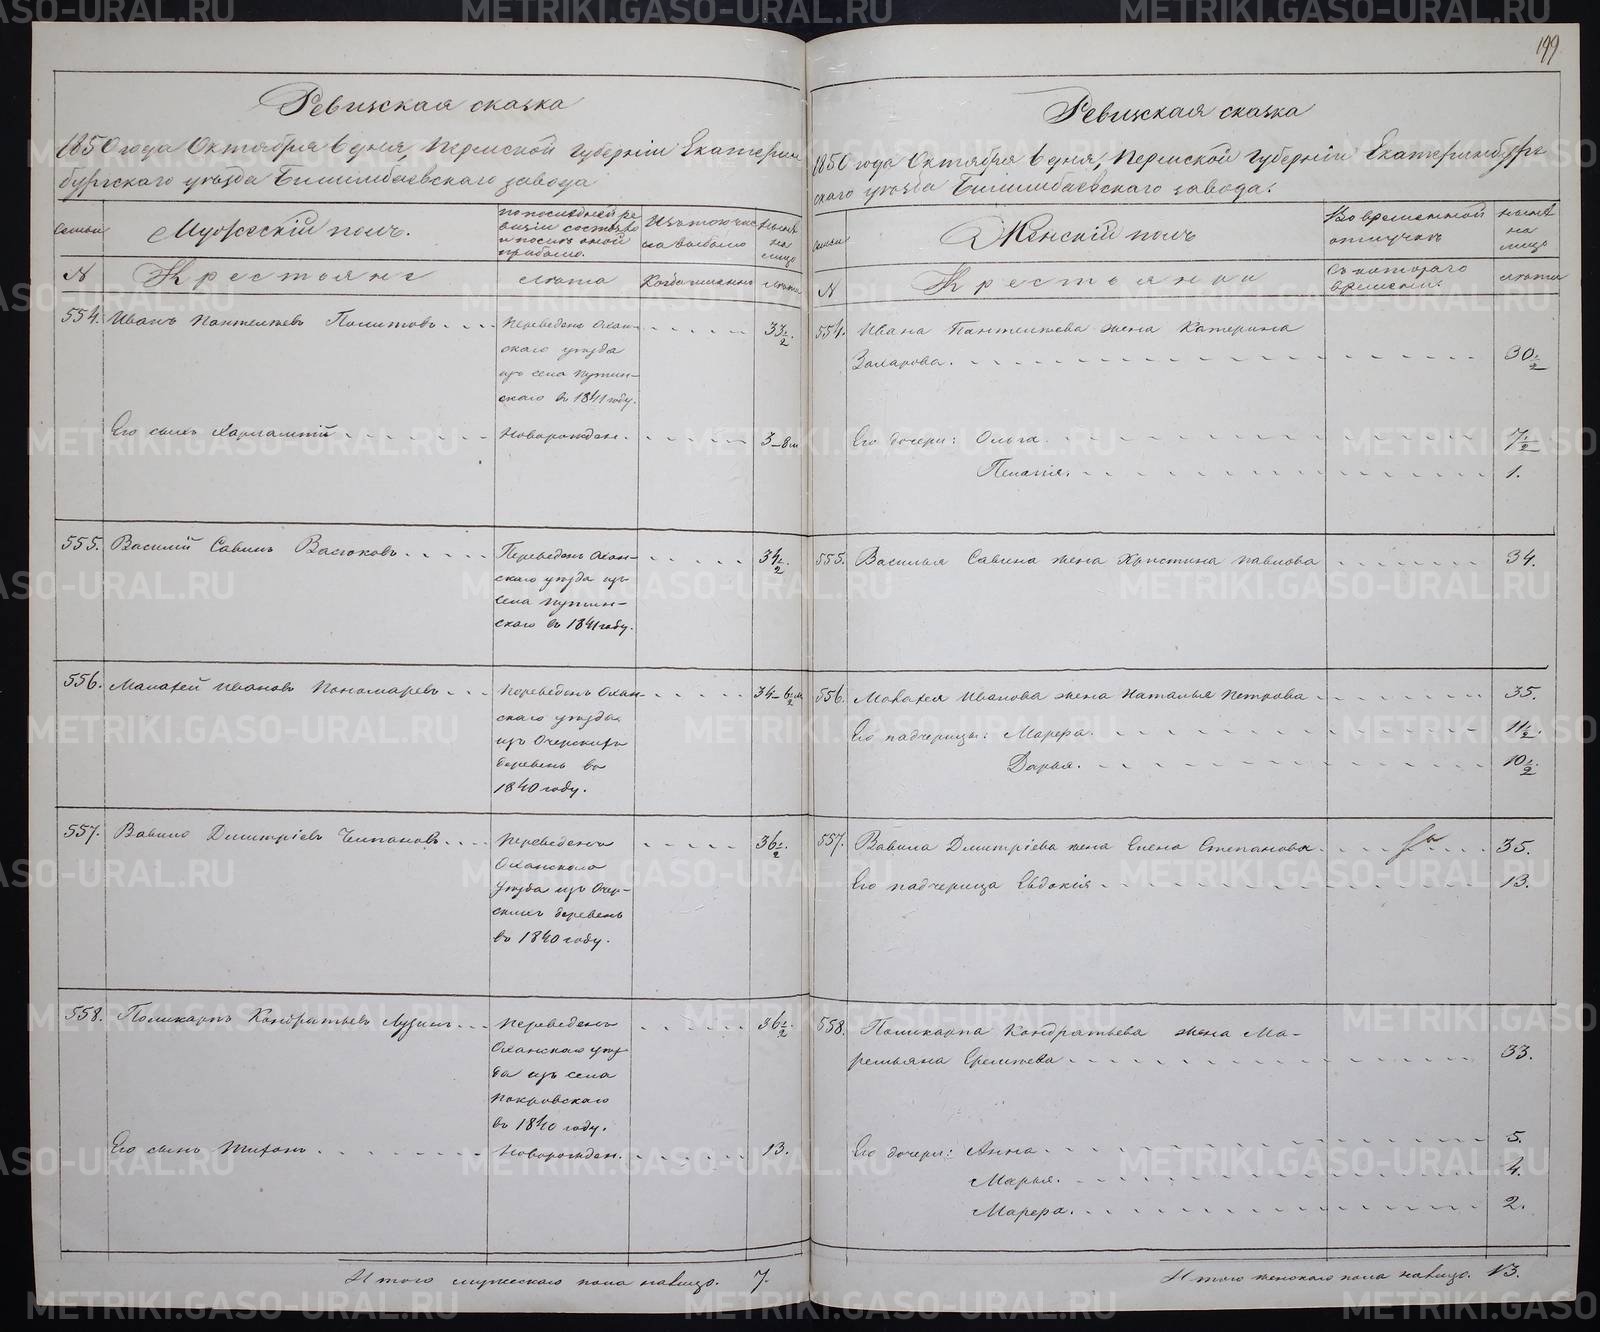 199
Ревизская сказка
1850 года Октября 6 дня, Пермской губернiи Екатерин
бургскаго уѣзда Билимбаевскаго завода
семьи
Мужескiй полъ.
по последней ре
визiи состояло
и послѣ оной
прибыло.
Изъ того чис
ла выбыло
нынѣ
на
лицо
N
Крестьяне
лѣта
Когда именно
лѣта
554. Иванъ Пантелѣевъ Политовъ. . . . Переведенъ Охан- . . . . . . 33½.
скаго уѣзда
изъ села Путин-
скаго въ 1841 году.
Его сынъ Харлампiй . . . . . . . . Новорожден. . . . . . . 3-8 м
555. Василiй Савинъ Васюковъ. . . . . Переведенъ Охан- . . . . . . 34½.
скаго уѣзда изъ
села Путин-
скаго въ 1841 году.
556. Малахей Ивановъ Пономаревъ. . . Переведенъ Охан- . . . . . . 34-6½ м
скаго уѣзда
изъ Очерскихъ
деревень въ
1840 году.
557. Вавило Дмитрiевъ Чепановъ. . . . Переведенъ . . . . . . 36½.
Оханскаго
уѣзда изъ Очер-
скихъ деревень
въ 1840 году.
558. Поликарпъ Кондратьевъ Лузинъ. . . Переведенъ . . . . . . 36½.
Оханскаго уѣз-
да изъ села
Покровскаго
въ 1840 году.
Его сынъ Тихонъ. . . . . . . . . Новорожден. . . . . . . 13.
Итого мужескаго пола налицо. 7.
Ревизская сказка
1850 года Октября 6 дня, Пермской губернiи Екатеринбург-
скаго уѣзда Билимбаевскаго завода.
семьи
Женскiй полъ
Во временной
отлучкѣ
нынѣ
на
лицо
N
Крестьянки
Съ котораго
времени.
лѣта
554. Ивана Пантелѣева жена Катерина
Захарова. . . . . . . . . . . 30½
Его дочери: Ольга. . . . . . . . . 7½
Пелагiя. . . . . . . . . 1.
555. Василья Савина жена Христина Павлова . . . . . . . 34.
556. Малахея Иванова жена Наталья Петрова . . . . . . . 35.
Его падчерицы: Марѳа. . . . . . . . . 11½.
Дарья. . . . . . . . . 10½.
557. Вавила Дмитрiева жена Елена Степанова. . . . . . . 35.
Его падчерица Евдокiя. . . . . . . . . 13.
558. Поликарпа Кондратьева жена Ма-
ремьяна Еремѣева . . . . . . . . . 33.
Его дочери: Анна. . . . . . . . . 5.
Марья. . . . . . . . . 4.
Марѳа. . . . . . . . . 2.
Итого женскаго пола налицо. 13.
METRIKI.GASO-URAL.RU